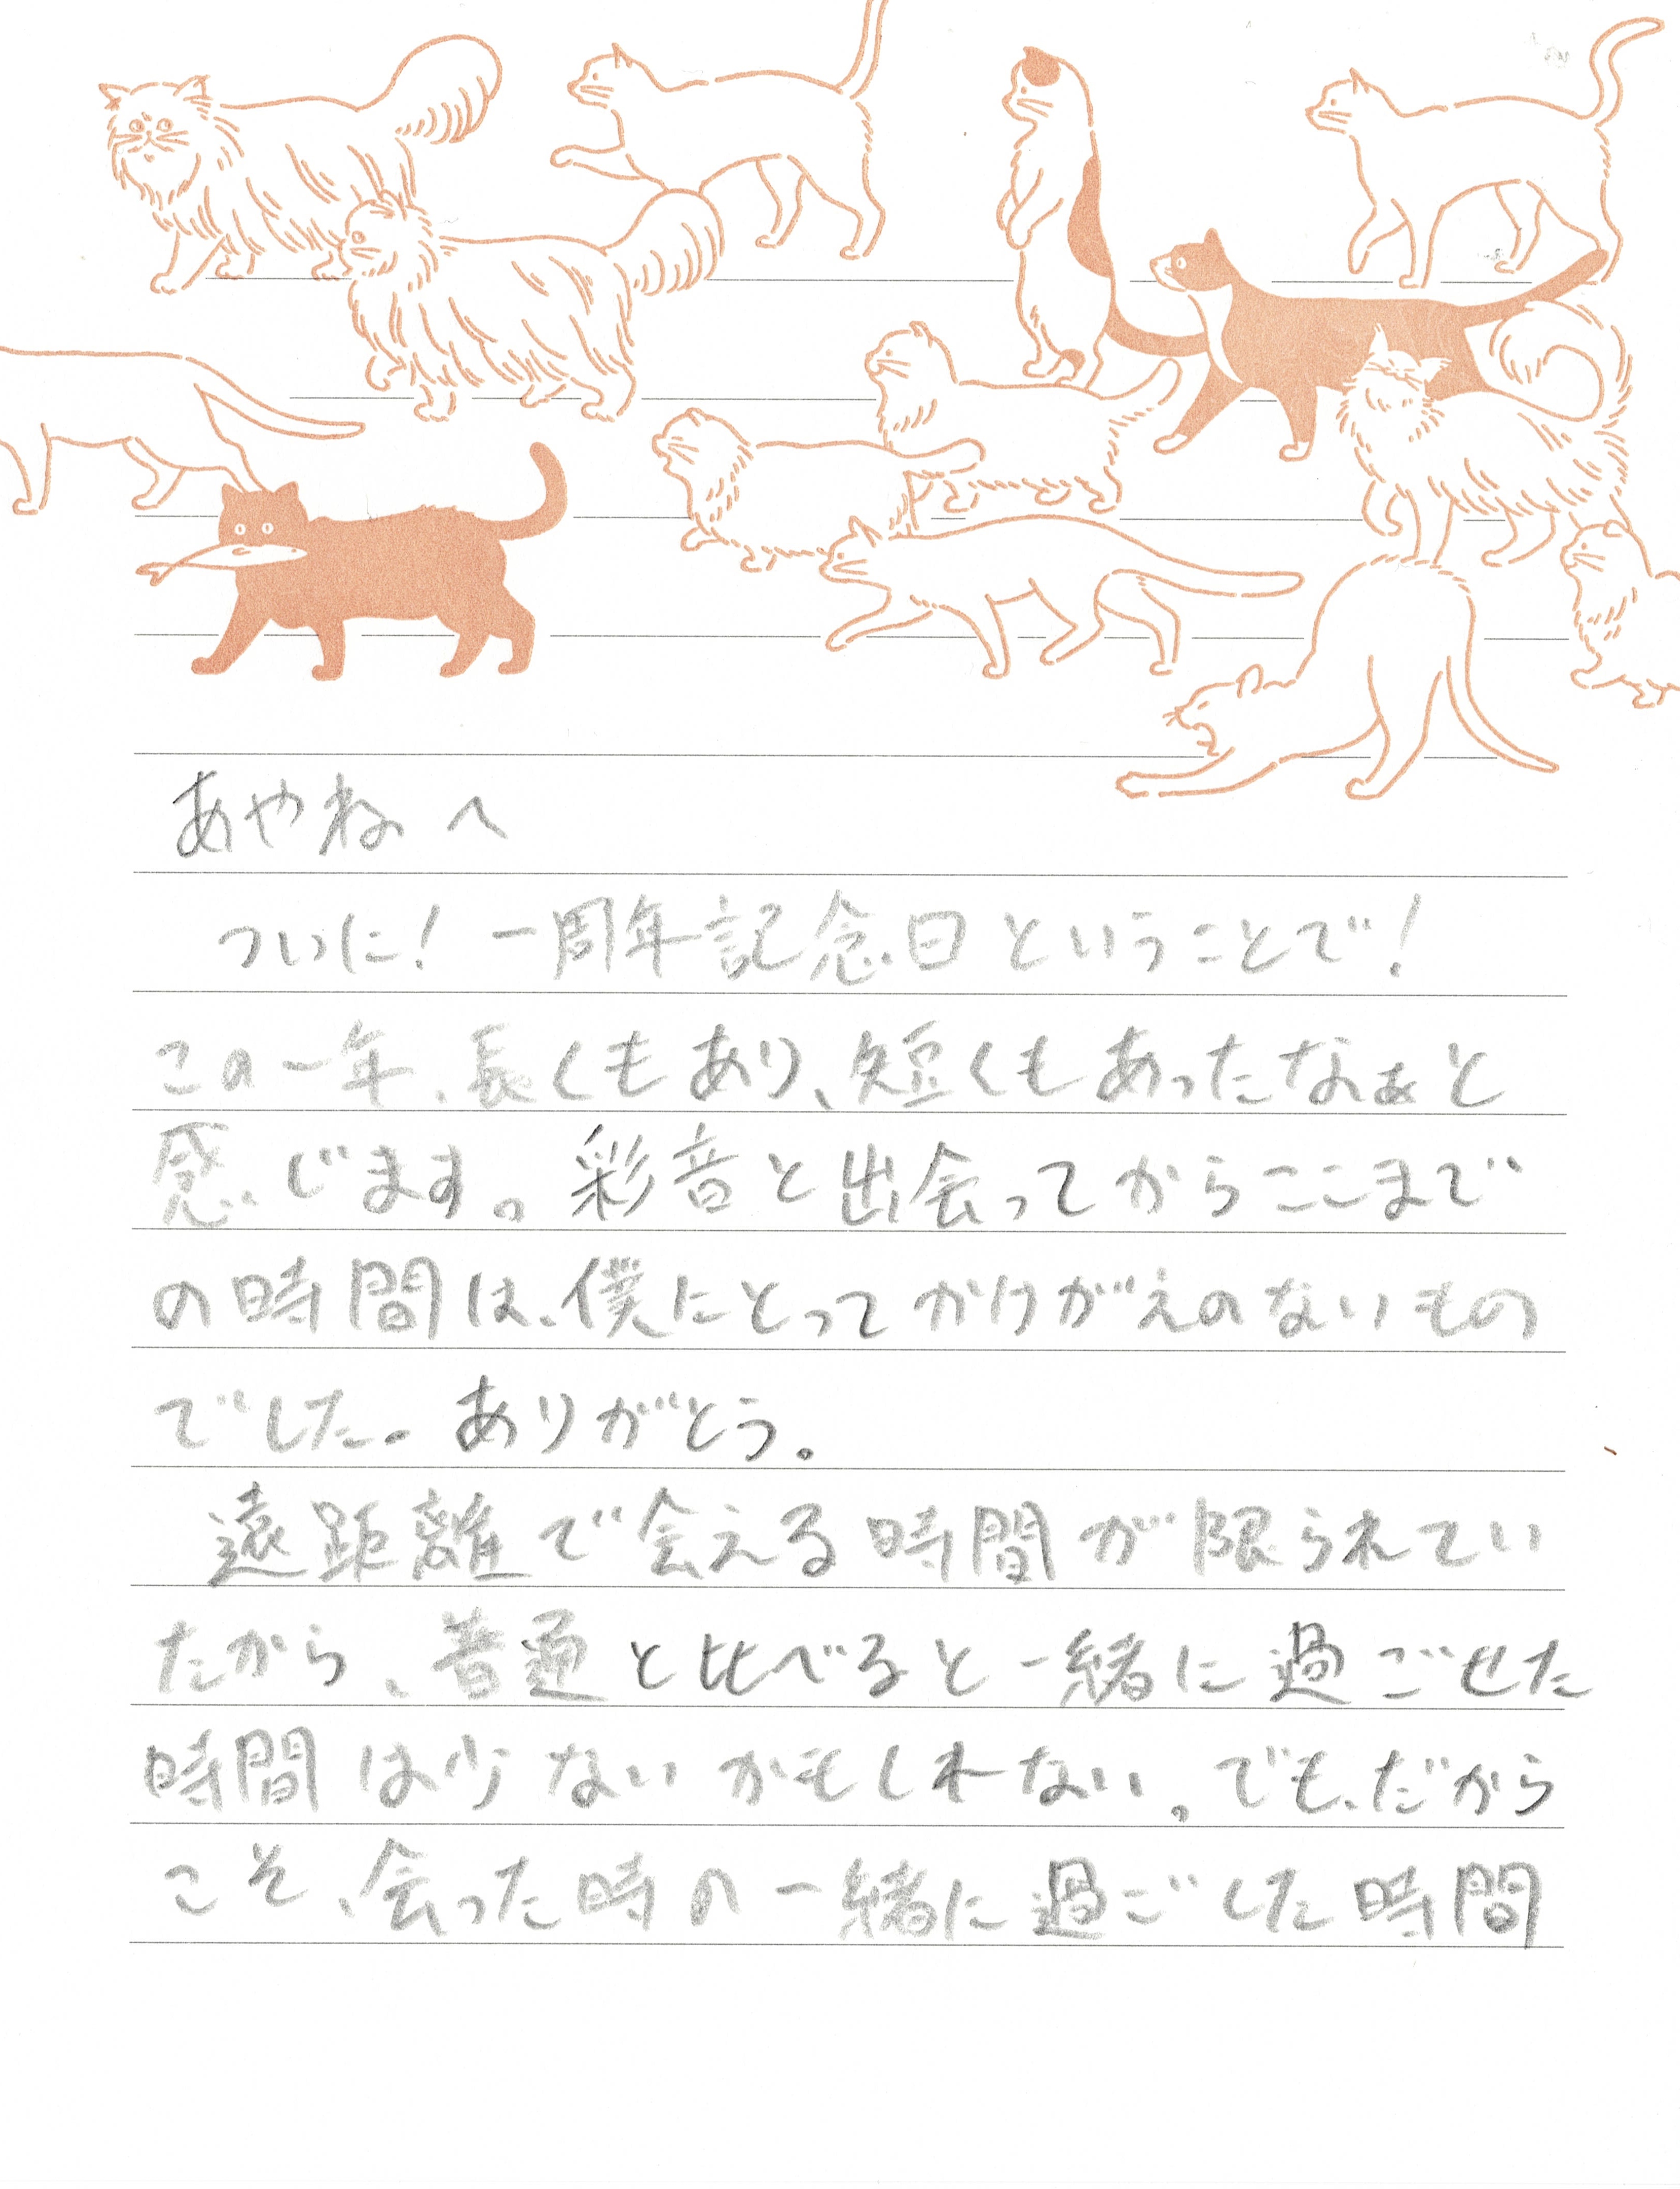 あやねへ
ついに！一周年記念日ということで！
この一年、長くもあり、短くもあったなぁと
感じます。彩音と出会ってからここまで
の時間は、僕にとってかけがえのないもの
でした。ありがとう。
遠距離で会える時間が限られてい
たから、普通と比べると一緒に過ごせた
時間は少ないかもしれない。でも、だから
こそ、会った時の一緒に過ごした時間